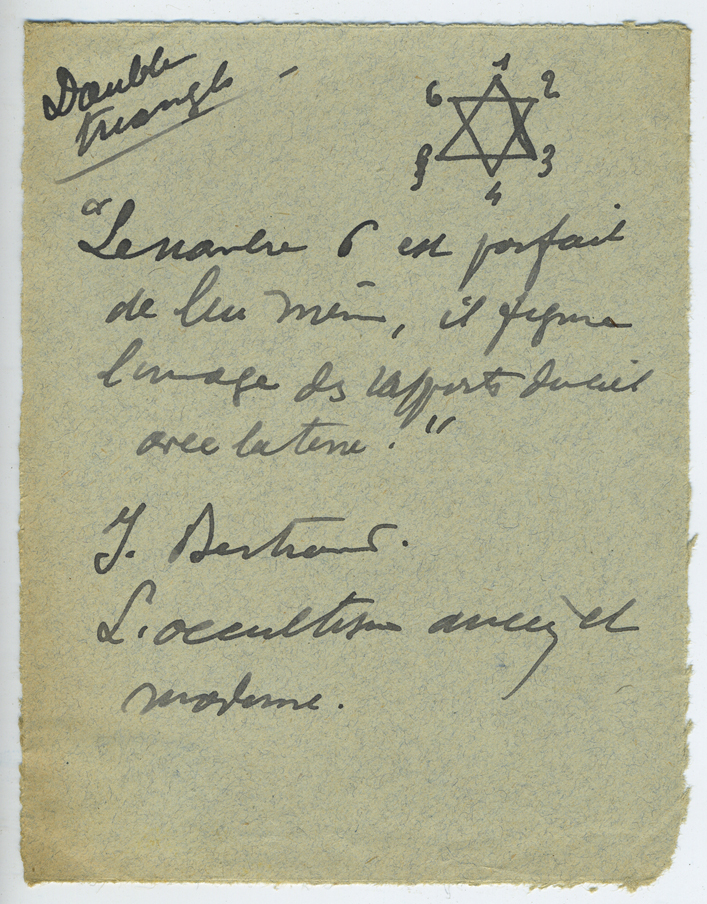 Double
triangle -
1
6 2
5 3
4
"Le nombre 6 est parfait
de lui même, il figure
l'image des rapports du ciel
avec la terre."
J. Bertrand.
L'occultisme ancien et
moderne.